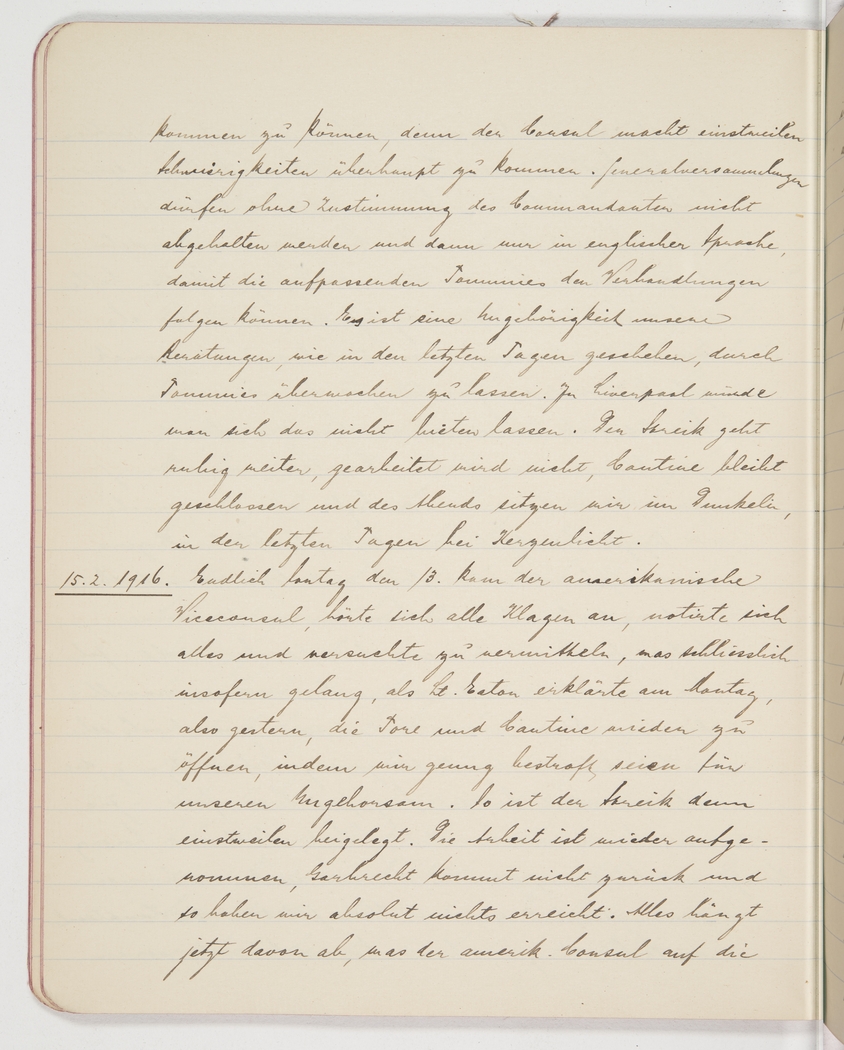 kommen zu können, denn der Consul macht einstweilen
Schwierigkeiten überhaupt zu kommen. Generalversammlungen
dürfen ohne Zustimmung des Commandanten nicht
abgehalten werden und dann nur in englischer Sprache,
damit die aufpassenden Tommies den Verhandlungen
folgen können. Es ist eine Ungehörigkeit unsere
Beratungen, wie in den letzten Tagen geschehen, durch
Tommies überwachen zu lassen. In Liverpool würde
man sich das nicht bieten lassen. Der Streik geht
ruhig weiter, gearbeitet wird nicht, Cantine bleibt
geschlossen und des Abends sitzen wir im Dunkeln,
in den letzten Tagen bei Kerzenlicht.
15.2.1916. Endlich Sontag den 13. kam der amerikanische
Viceconsul, hörte sich alle Klagen an, notirte sich
alles und versuchte zu vermitteln, was schliesslich
insofern gelang, als Lt. Eaton erklärte am Montag,
also gestern, die Tore und Cantine wieder zu
öffnen, indem wir genug bestraft seien für
unseren Ungehorsam. So ist der Streik denn
einstweilen beigelegt. Die Arbeit ist wieder aufge-
nommen, Garbrecht kommt nicht zurück und
so haben wir absolut nichts erreicht. Alles hängt
jetzt davon ab, was der amerik. Consul auf die